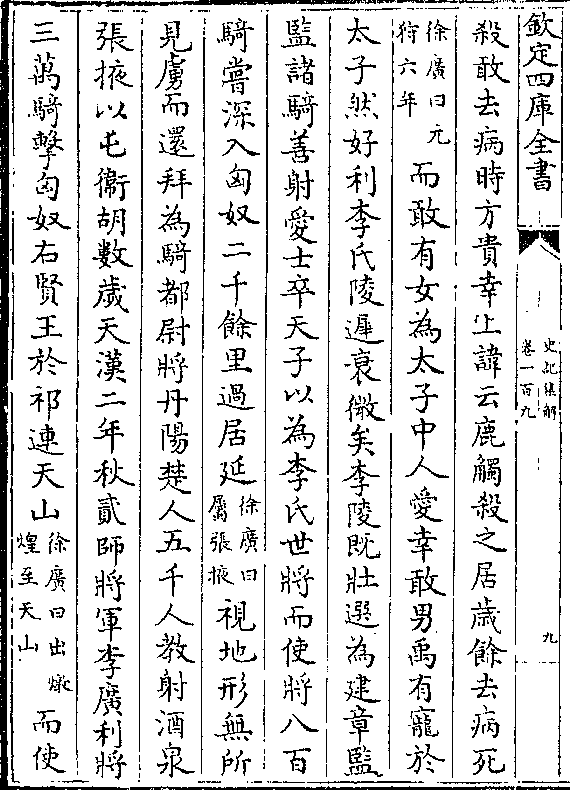 欽定四庫全書
史記集解
卷一百九
九
殺敢去病時方貴幸上諱云鹿觸殺之居歲餘去病死
徐廣曰元
狩六年
而敢有女為太子中人愛幸敢男禹有寵於
太子然好利李氏陵遲衰微矣李陵既壯選為建章監
監諸騎善射愛士卒天子以為李氏世將而使將八百
騎嘗深入匈奴二千餘里過居延
徐廣曰
屬張掖
視地形無所
見虜而還拜為騎都尉將丹陽楚人五千人教射酒泉
張掖以屯衞胡數歲天漢二年秋貳師將軍李廣利將
三萬騎擊匈奴右賢王於祁連天山
徐廣曰出燉
煌至天山
而使